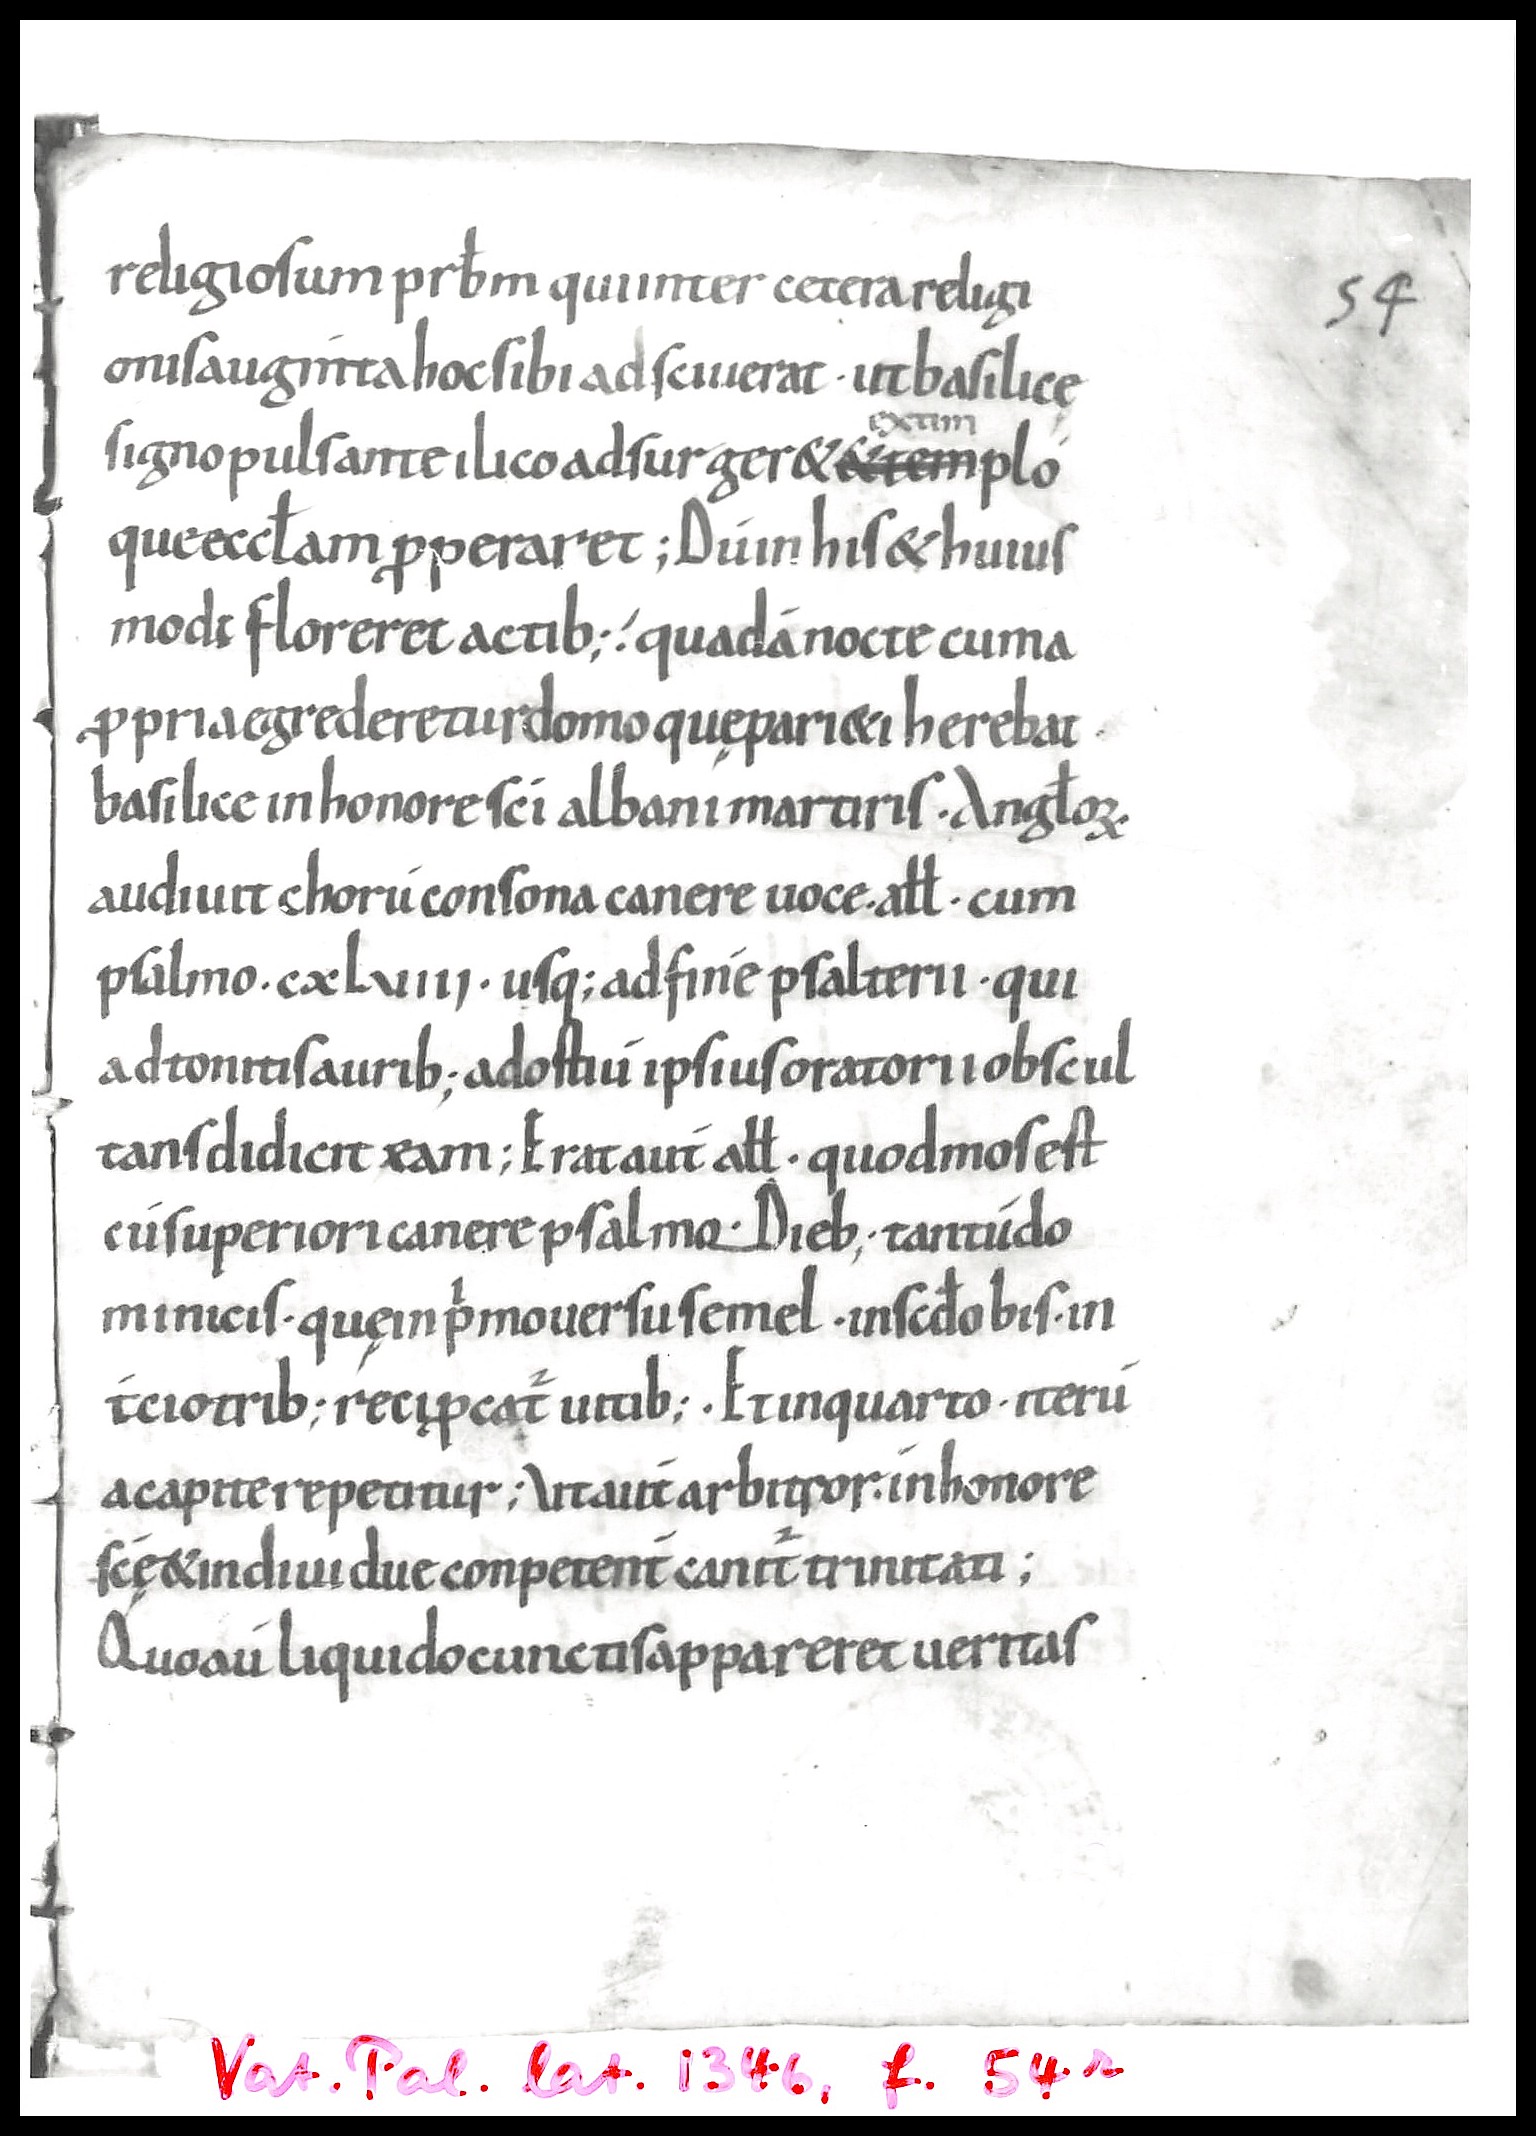 religiosum prb̄m qui inter cetera religi
54
onis augm̄ta hoc sibi adsciuerat · ut basilicę
extim
signo pulsante ilico adsurger& &templo
que eccl̄am ꝓperaret ; Dū in his & huius
modi floreret actib; quadā nocte cum a
ꝓpria egrederetur domo quę pari&i herebat
basilice in honore sc̄i albani martiris · Angl̄oꝝ
audiuit chorū consona canere uoce · all̄ · cum
psalmo · cxlviiij · usq; ad finē psalterii · qui
adtonitis aurib; ad ostiū ipsius oratorii obscul
tans didicit eam ; Erat aut̄ all̄ · quod mos est
cū superiori canere psalmo · Dieb; · tantū do
minicis · quę in pͥmo uersu semel · in scd̄o bis · in
t̄cio trib; reciꝓcat᷒ uicib; · Et in quarto · iterū
a capite repetitur ; Vt aut̄ arbitror · in honore
sc̄ę & indiuidue conpetent̄ canit᷒ trinitati ;
Quo aū liquido cunctis appareret ueritas
Vat. Pal. lat. 1346, f. 54r